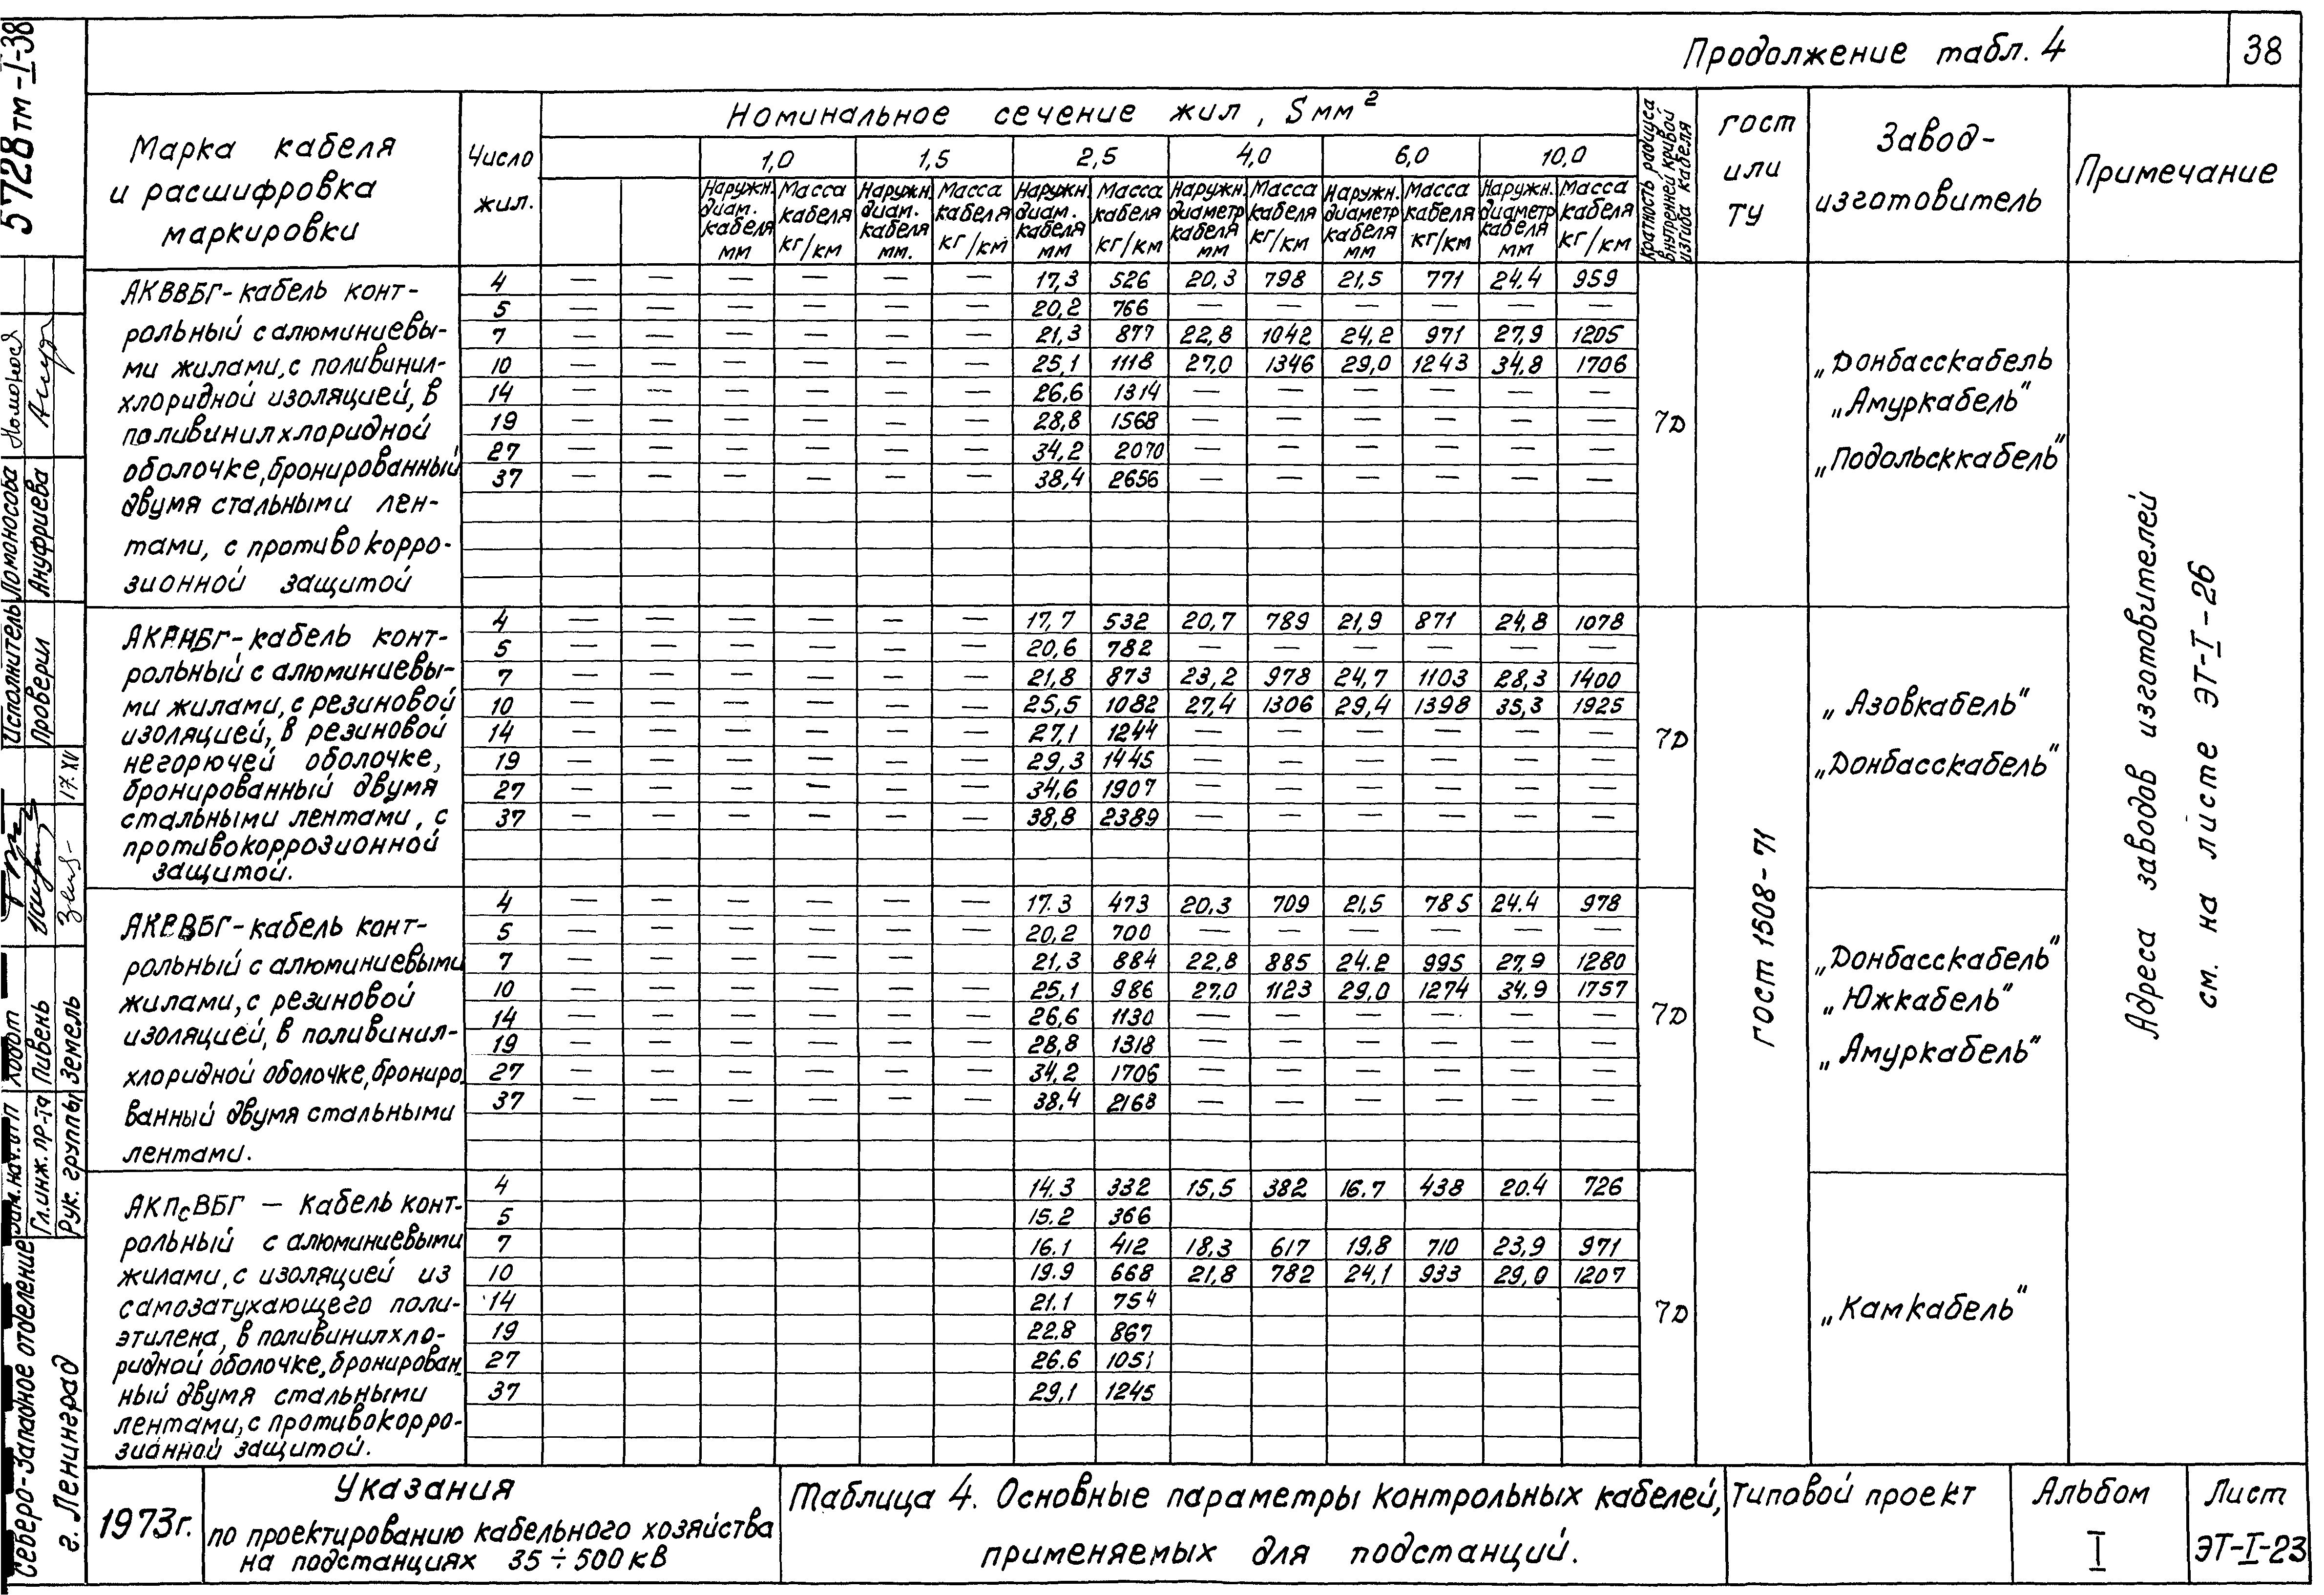 Продолжение табл. 4
38
5728тм-I-38
Марка кабеля
и расшифровка
маркировки
Число
жил.
Номинальное сечение жил, S мм²
1,0 1,5 2,5 4,0 6,0 10,0
Наружн. диам. кабеля мм
Масса кабеля кг/км
Наружн. диам. кабеля мм.
Масса кабеля кг/км
Наружн. диам. кабеля мм
Масса кабеля кг/км
Наружн. диаметр кабеля мм
Масса кабеля кг/км
Наружн. диаметр кабеля мм
Масса кабеля кг/км
Наружн. диаметр кабеля мм
Масса кабеля кг/км
Кратность радиуса
внутренней кривой
изгиба кабеля
ГОСТ
или
ТУ
Завод-
изготовитель
Примечание
АКВВБГ-кабель конт-
рольный с алюминиевы-
ми жилами, с поливинил-
хлоридной изоляцией, в
поливинилхлоридной
оболочке, бронированный
двумя стальными лен-
тами, с противокорро-
зионной защитой
4 — — — — — — 17,3 526 20,3 798 21,5 771 24.4 959
5 — — — — — — 20,2 766 — — — — — —
7 — — — — — — 21,3 877 22,8 1042 24,2 971 27,9 1205
10 — — — — — — 25,1 1118 27,0 1346 29,0 1243 34,8 1706
14 — — — — — — 26,6 1314 — — — — — —
19 — — — — — — 28,8 1568 — — — — — —
27 — — — — — — 34,2 2070 — — — — — —
37 — — — — — — 38,4 2656 — — — — — —
7D
„Донбасскабель
„Амуркабель"
„Подольсккабель"
АКРНБГ-кабель конт-
рольный с алюминиевы-
ми жилами, с резиновой
изоляцией, в резиновой
негорючей оболочке,
бронированный двумя
стальными лентами, с
противокоррозионной
защитой.
4 — — — — — — 17,7 532 20,7 789 21,9 871 24,8 1078
5 — — — — — — 20,6 782 — — — — — —
7 — — — — — — 21,8 873 23,2 978 24,7 1103 28,3 1400
10 — — — — — — 25,5 1082 27,4 1306 29,4 1398 35,3 1925
14 — — — — — — 27,1 1244 — — — — — —
19 — — — — — — 29,3 1445 — — — — — —
27 — — — — — — 34,6 1907 — — — — — —
37 — — — — — — 38,8 2389 — — — — — —
7D
„Азовкабель"
„Донбасскабель"
АКРВБГ-кабель конт-
рольный с алюминиевыми
жилами, с резиновой
изоляцией, в поливинил-
хлоридной оболочке, брониро.
ванный двумя стальными
лентами.
4 — — — — — — 17.3 473 20,3 709 21,5 785 24.4 978
5 — — — — — — 20,2 700 — — — — — —
7 — — — — — — 21,3 884 22,8 885 24.2 995 27,9 1280
10 — — — — — — 25,1 986 27,0 1123 29,0 1274 34,9 1757
14 — — — — — — 26,6 1130 — — — — — —
19 — — — — — — 28,8 1318 — — — — — —
27 — — — — — — 34,2 1706 — — — — — —
37 — — — — — — 38,4 2168 — — — — — —
7D
„Донбасскабель"
„Южкабель"
„Амуркабель"
АКПсВБГ — Кабель конт-
рольный с алюминиевыми
жилами, с изоляцией из
самозатухающего поли-
этилена, в поливинилхло-
ридной оболочке, бронирован.
ный двумя стальными
лентами, с противокорро-
зионной защитой.
4 14.3 332 15,5 382 16.7 438 20.4 726
5 15.2 366
7 16.1 412 18,3 617 19,8 710 23,9 971
10 19.9 668 21,8 782 24,1 933 29,0 1207
14 21.1 754
19 22.8 867
27 26.6 1051
37 29,1 1245
7D
„Камкабель"
ГОСТ 1508-71
Адреса заводов изготовителей
см. на листе ЭТ-I-26
Исполнитель Ломоносова
Проверил Ануфриева
17.XII
Зам.нач.отп
Гл.инж. пр-та Пивень
Рук. группы Земель
Северо-Западное отделение
г. Ленинград
1973г.
Указания
по проектированию кабельного хозяйства
на подстанциях 35÷500 кВ
Таблица 4. Основные параметры контрольных кабелей,
применяемых для подстанций.
Типовой проект
Альбом
I
Лист
ЭТ-I-23